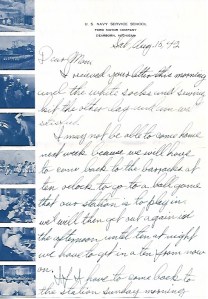 U. S. NAVY SERVICE SCHOOL
FORD MOTOR COMPANY
DEARBORN, MICHIGAN
Sat, Aug, 15, 42
Dear Mom,
I received your letter this morning
and the white socks and sewing
the other day and am
satisfied.
I may not be able to come home
next week because we will have
to come back to the barracks at
ten oclock to go to a ball game
that our station is to play in.
we will then get out again in
the afternoon until ten at night
we have to get in at ten from now
on.
If I have to come back to
the station sunday morning